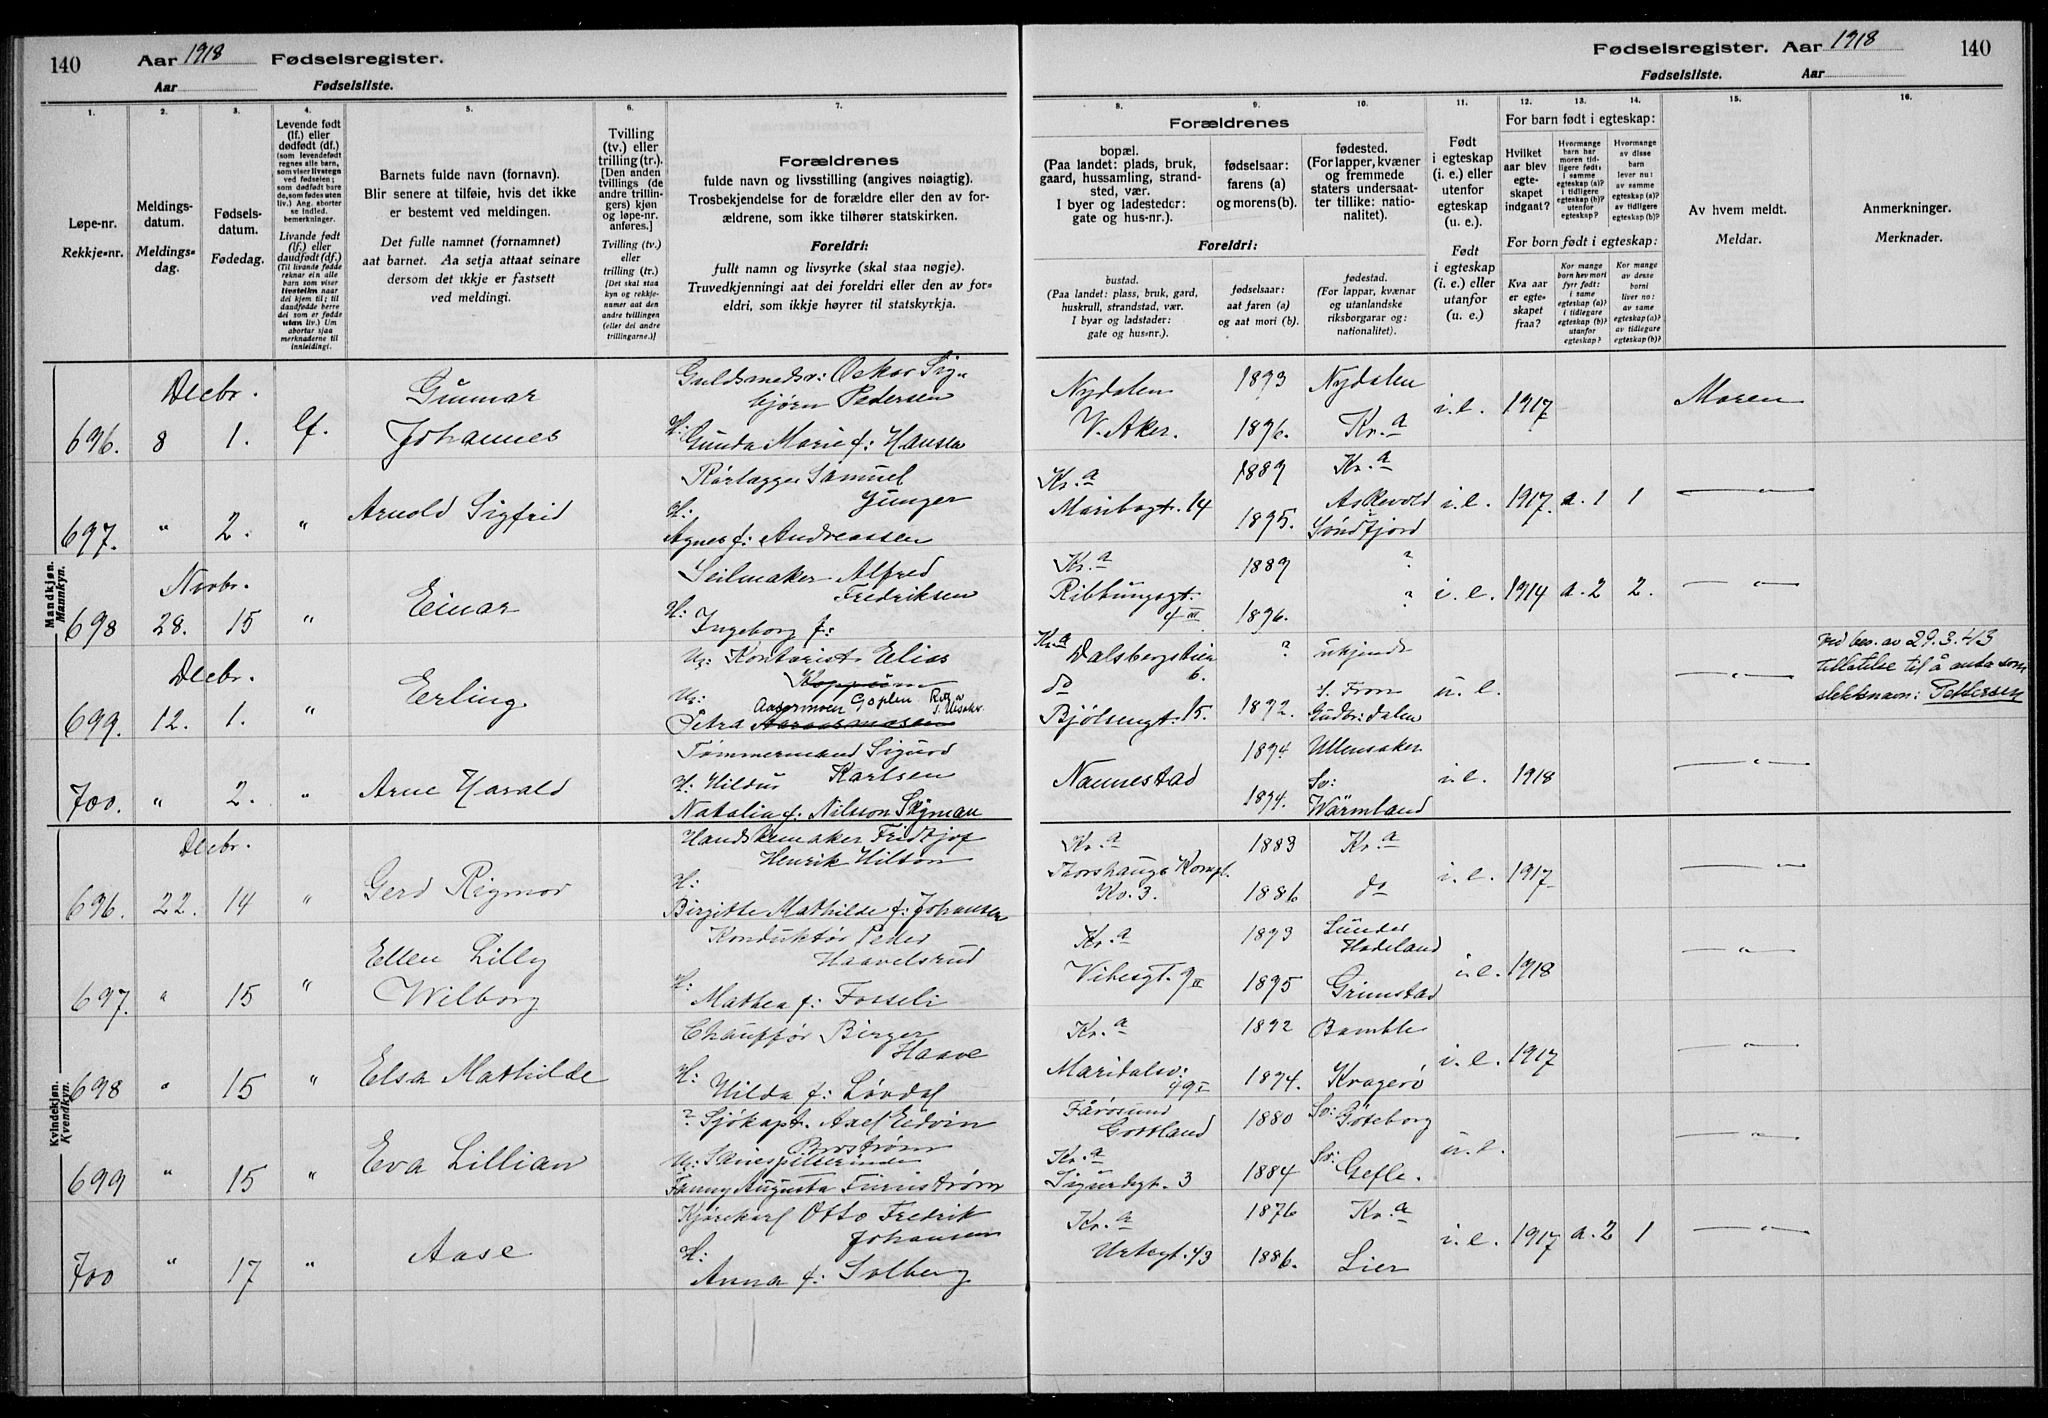 140 Aar 1918 Fødselsregister.
Aar Fødselsliste.
Fødselsregister. Aar 1918 140
Fødselsliste. Aar
1. 2. 3. 4. 5. 6. 7.
8. 9. 10. 11. 12. 13. 14. 15. 16.
Løpe-nr.
Rekkje-nr.
Meldings-
datum.
Meldings-
dag.
Fødsels-
datum.
Fødedag.
Levende født
(lf.) eller
dødfødt (df.)
(som levendefødt
regnes alle barn,
som viser livstegn
ved fødselen;
som dødfødt bare
de, som fødes uten
liv.) Ang. aborter
se indled.
bemerkninger.
Livande født
(lf.) eller
daudfødt (df.)
(Til livande fødde
reknar ein alle
barn som viser
livsteikn naar
dei kjem til; til
daudfødde berre
dei som er fødde
utan liv.) Um
abortar sjaa
merknaderne til
innleidingi.
Barnets fulde navn (fornavn).
Blir senere at tilføie, hvis det ikke
er bestemt ved meldingen.
Det fulle namnet (fornamnet)
aat barnet. Aa setja attaat seinare
dersom det ikkje er fastsett
ved meldingi.
Tvilling
(tv.) eller
trilling (tr.).
[Den anden
tvillings (de
andre trillin-
gers) kjøn
og løpe-nr.
anføres.]
Tvilling (tv.)
eller
trilling (tr.)
[Det skal staa
kyn og rekkje-
numer aat den
andre tvillingen
(eller dei andre
trillingarne.)]
Forældrenes
fulde navn og livsstilling (angives nøiagtig).
Trosbekjendelse for de forældre eller den av for-
ældrene, som ikke tilhører statskirken.
Foreldri:
fullt namn og livsyrke (skal staa nøgje).
Truvedkjenningi aat dei foreldri eller den av for-
eldri, som ikkje høyrer til statskyrkja.
Forældrenes
bopæl.
(Paa landet: plads, bruk,
gaard, hussamling, strand-
sted, vær.
I byer og ladesteder:
gate og hus-nr.).
fødselsaar:
farens (a)
og morens (b).
fødested.
(For lapper, kvæner
og fremmede
staters undersaat-
ter tillike: natio-
nalitet).
Foreldri:
bustad.
(Paa landet: plass, bruk, gard,
huskrull, strandstad, vær.
I byar og ladstader:
gate og hus-nr.).
fødselsaar:
aat faren (a)
og aat mori (b).
fødestad.
(For lappar, kvænar
og utanlandske
riksborgarar og:
nationalitet).
Født
i egteskap
(i. e.) eller
utenfor
egteskap
(u. e.).
Født
i egteskap
(i. e.) eller
utanfor
(u. e.)
For barn født i egteskap:
Hvilket
aar blev
egte-
skapet
indgaat?
Hvormange
barn har
moren tid-
ligere født:
i samme
egteskap (a)?
i tidligere
egteskap (b)?
utenfor
egteskap?
Hvormange
av disse
barn
lever nu:
av samme
egteskap (a)?
av tidligere
egteskap (b)?
For born født i egteskap:
Kva aar
er egte-
skapet
fraa?
Kor mange
born hev mori
fyrr født:
i same
egteskap (a)?
i tidlegare
egteskap (b)?
utanfor
egteskap?
Kor mange
av desse
borni
liver no:
av same
egteskap (a)?
av tidlegare
egteskap (b)?
Av hvem meldt.
Meldar.
Anmerkninger.
Merknader.
Mandkjøn.
Mannkyn.
Decbr. Gunnar Guldsmedsv: Oskar Sig-
bjørn Pedersen Nydalen 1893 Nydalen
696. 8 1. lf. Johannes H: Gunda Marie f: Hansen V. Aker. 1896. Kr.a i.e. 1917 Moren
Rørlægger Samuel Kr.a 1889 Kr.a
697. " 2. " Arnold Sigfrid Gunger Maribogt. 14 1895. Askevold i.e. 1917. a. 1 1 — " —
H: Agnes f: Andreassen Søndfjord
Novbr. Seilmaker Alfred Kr.a 1889 ?
698 28. 15 " Einar Fredriksen 4 III 1896. ? i.e. 1914 a. 2 2. — " —
H: Ingeborg f:
Decbr. U: Kontorist Elias Kr.a Dalsbergstien 6. ? ukjendt
ved bev. av 29.3.43
tillatelse til å anta som
slektsnavn: Pettersen
699. 12. 1. " Erling Goplen do Bjølsengt. 15. 1892. S. Fron u.e. — " —
U: Petra Gudbr: dalen
Tømmermand Sigurd 1894 Ullensaker
700. " 2. " Arne Harald Karlsen Nannestad i.e. 1918 — " —
H: Hildur
Natalia f: Nilsson 1894. Sv: Wärmland
Kvindekjøn.
Kvendkyn.
Decbr. Handskemaker Fridtjof Kr.a 1883 Kr.a
696. 22. 14 " Gerd Rigmor Henrik Nilson Thorshaugs Kompl. Kv. 3. 1886 do i.e. 1917 — " —
H: Birgitte Mathilde f: Johansen
Ellen Lilly Konduktør Peder Haavelsrud Kr.a 1893 Lunder Hadeland
697. " 15 " Wilborg Vibesgt. 9 II 1895 Grimstad i.e. 1918 — " —
H: Mathea f: Fosseli
Chauffør Birger Haave Kr.a 1892 Bamble
698 " 15 " Elsa Mathilde Maridalsv: 49 I 1894. Kragerø i.e. 1917 — " —
H: Hilda f: Løvdal
? Sjøkapt. Axel Edvin Brostrøm Fårösund Gottland 1880 Sv: Göteborg
699 " 15 " Eva Lillian U: Kr.a Sigurdsgt. 3 1884 Sv: Gefle. u.e. — " —
Fanny Augusta
Kjørekarl Otto Fredrik Johansen Kr.a 1876 Kr.a
700 " 17 " Aase Urtegt. 43 1886. Lier i.e. 1917 a. 2 1 — " —
H: Anna f: Solberg